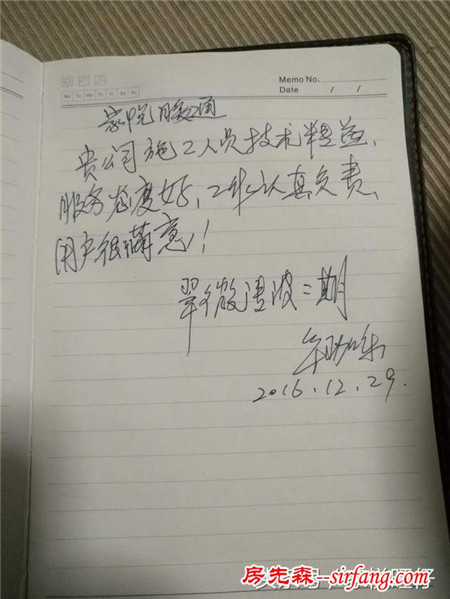 Memo No.
Mo Tu We Th Fr Sa Su
Date / /
家悦暖通
贵公司施工人员技术精益、
服务态度好，工作认真负责、
用户很满意！
翠微清波二期
2016.12.29.
房先森--sirfang.com